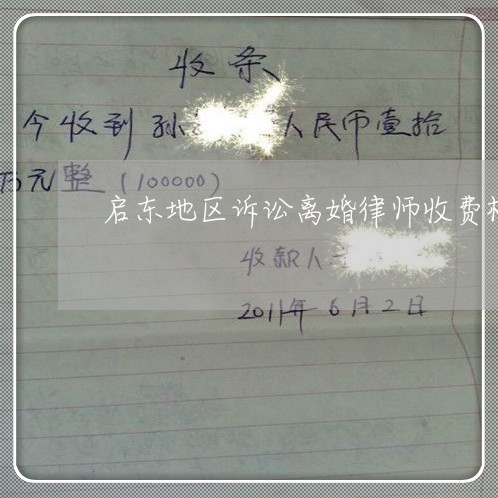 收条
今收到孙 人民币壹拾
万元整（100000）
启东地区诉讼离婚律师收费
收款人
2011年6月2日